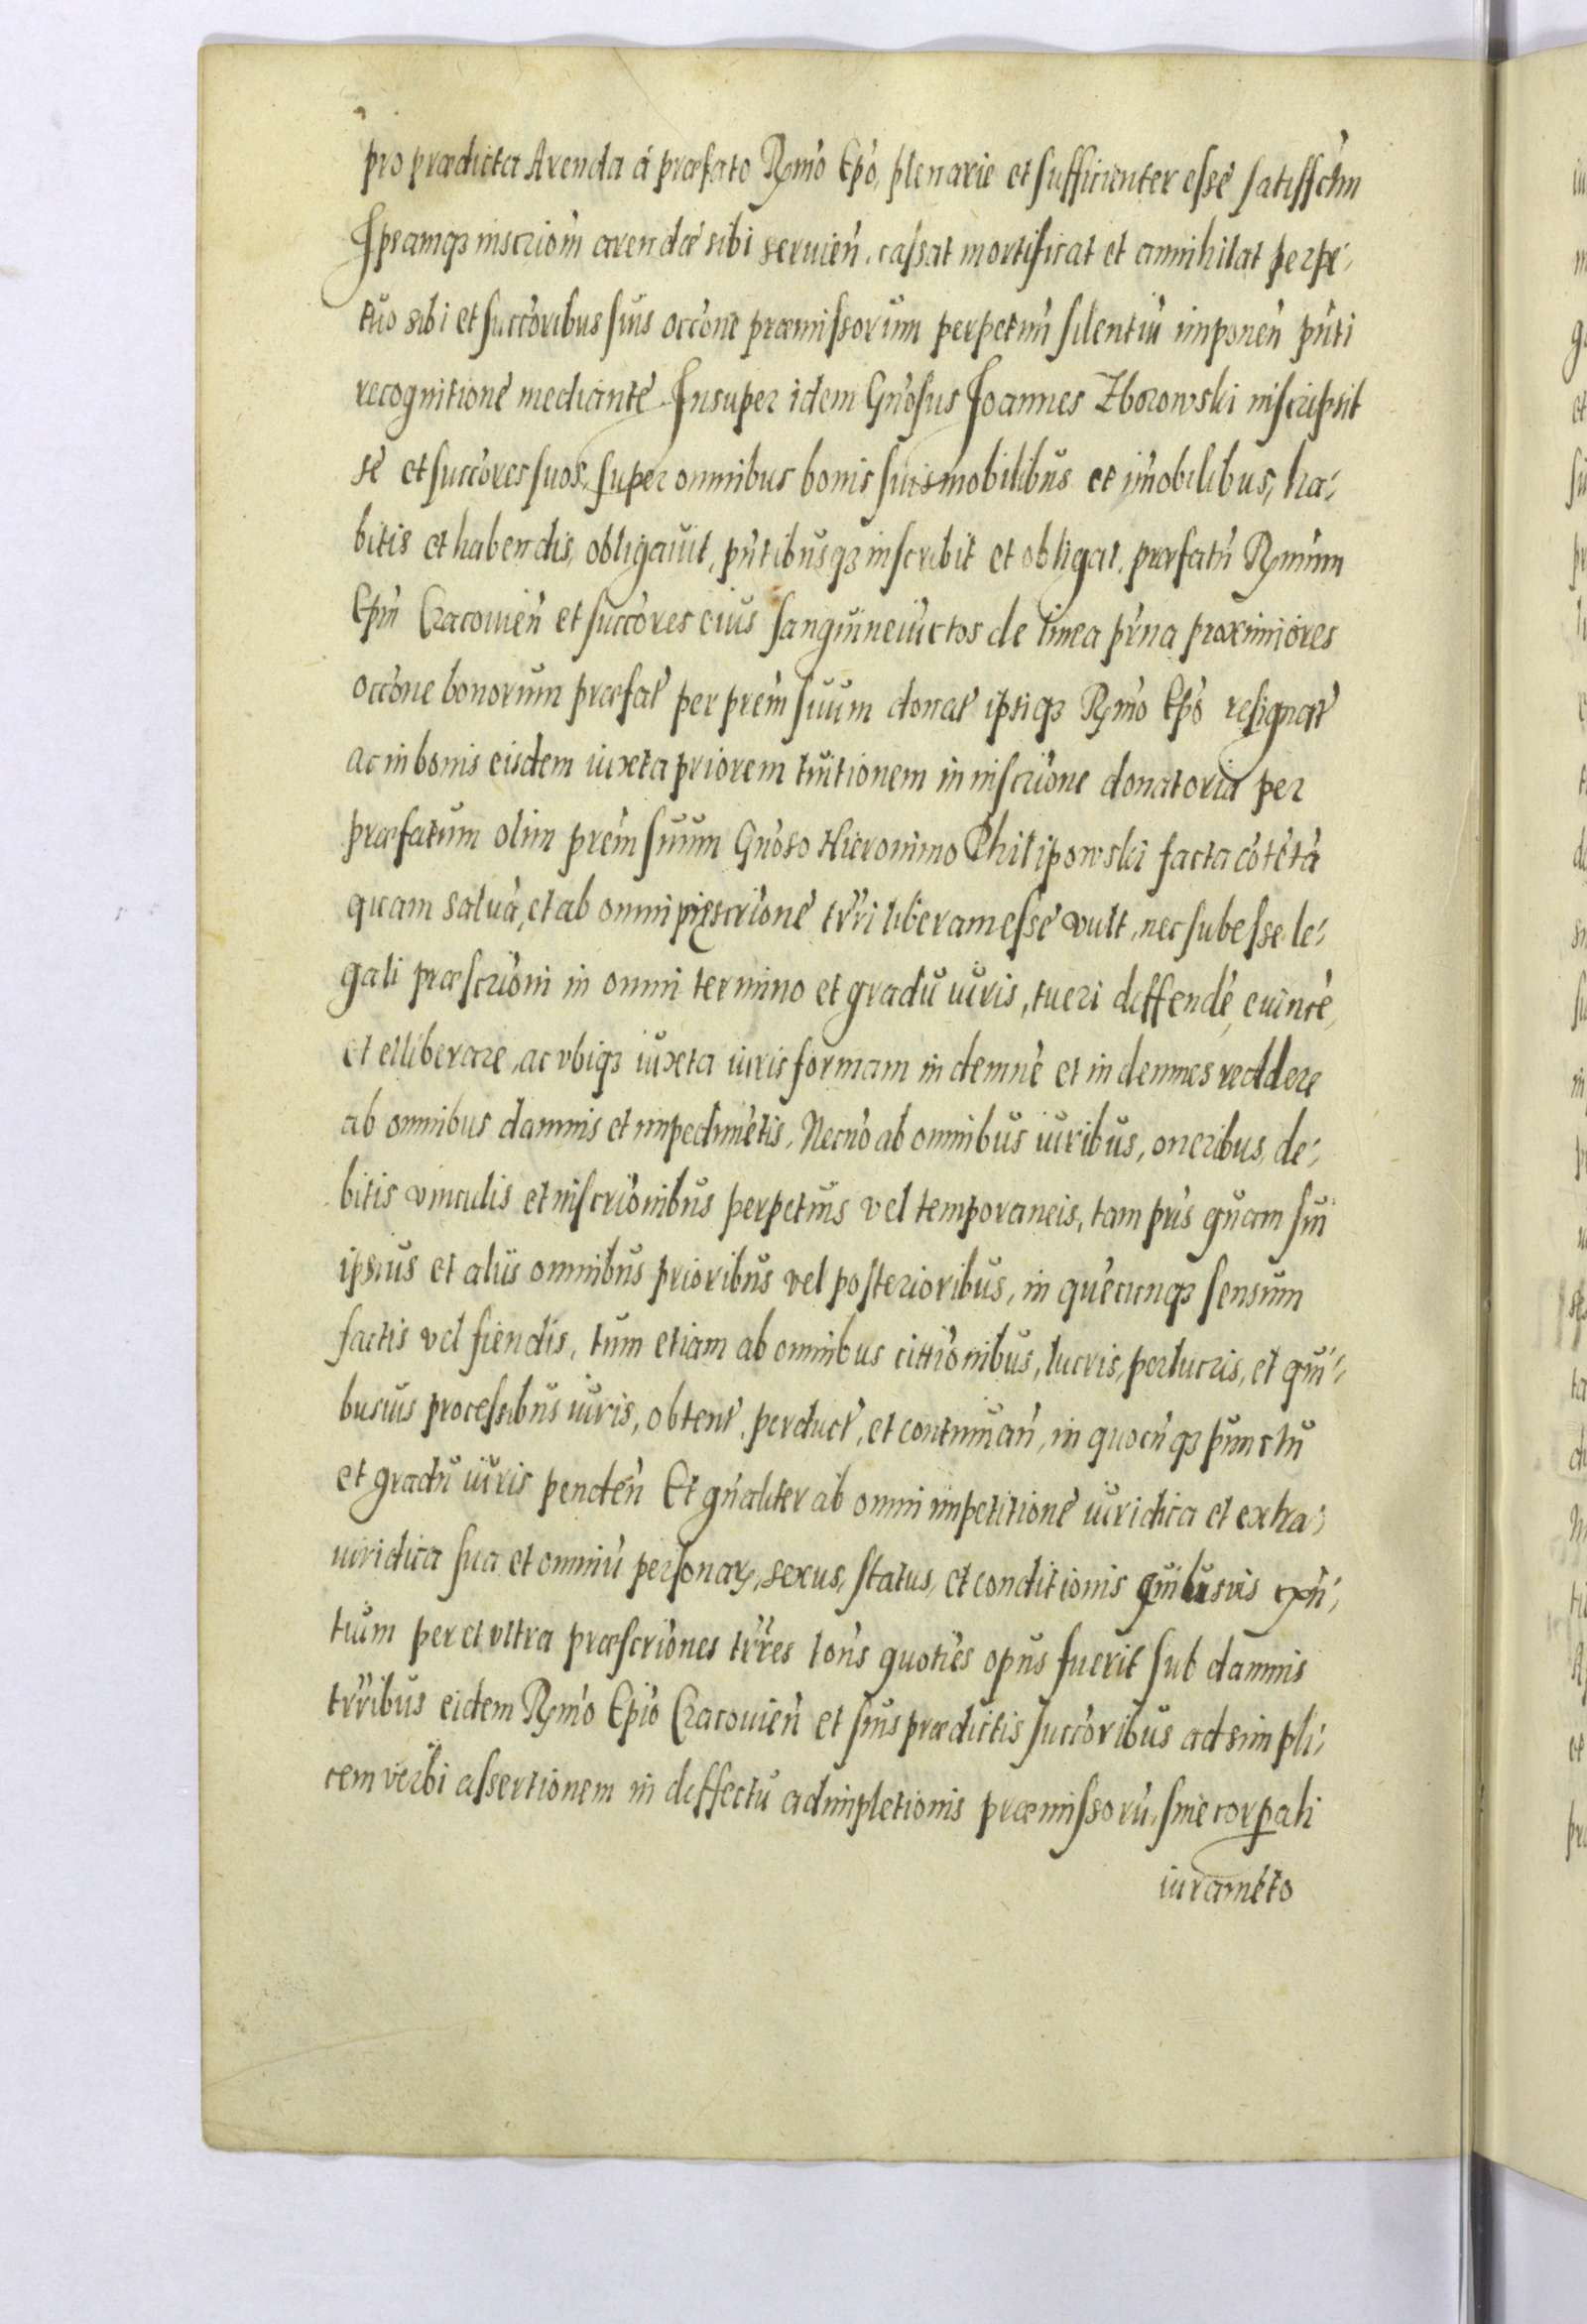 pro prædicta Arenda á præfato Rṃo Epo, plenarie et sufficienter esse satisfctm
Ipsamqꝫ inscriom arendæ sibi seruien. cassat mortificat et annihilat perpe-
tuo sibi et succoribus suis occone præmissorum perpetuu silentiu imponen pnti
recognitione mediante Insuper idem Gnosus Joannes Zborowski inscripsit
se et succores suos, super omnibus bonis suis mobilibus et imobilibus, ha-
bitis et habendis, obligauit, pntibusqꝫ inscribit et obligat, præfatu Rmum
Epm Cracouien et succores eius sanguineiuctos de linea pṛna proximiores
occone bonorum præfat per prem suum donat ipsiqꝫ Rmo Epo resignat
ac in bonis eisdem iuxta priorem tuitionem in inscrione donatoria per
præfatum olim prem suum Gnoso Hieronimo Philipowski facta cotēta
quam salua, et ab omni præscrione trri liberam esse vult, nec subesse le-
gali præscrioni in omni termino et gradu iuris, tueri diffende, euince,
et elliberare, ac vbiqꝫ iuxta iuris formam indemne et indemnes reddere
ab omnibus damnis et impedimētis, Necno ab omnibus iuribus, oneribus, de-
bitis vinculis et inscrionibus perpetuis vel temporaneis, tam pris quam sui
ipsius et aliis omnibus prioribus vel posterioribus, in quecunqꝫ sensum
factis vel fiendis, tum etiam ab omnibus cittionibus, lucris, perlucris, et qui-
busuis processibus iuris, obtent, perduct, et continuan, in quocuqꝫ punctu
et gradu iuris penden Et gnaliter ab omni impetitione iuridica et extra-
iuridica sua et omniu personaꝝ, sexus, status, et conditionis quibusvis exn-
tium per et vltra præscriones trres tons quoties opus fuerit sub damnis
trribus eidem Rmo Epio Cracouien et suis prædictis succoribus ad simpli-
cem verbi assertionem in diffectu adimpletionis præmissoru, sine corꝑali
iuramēto